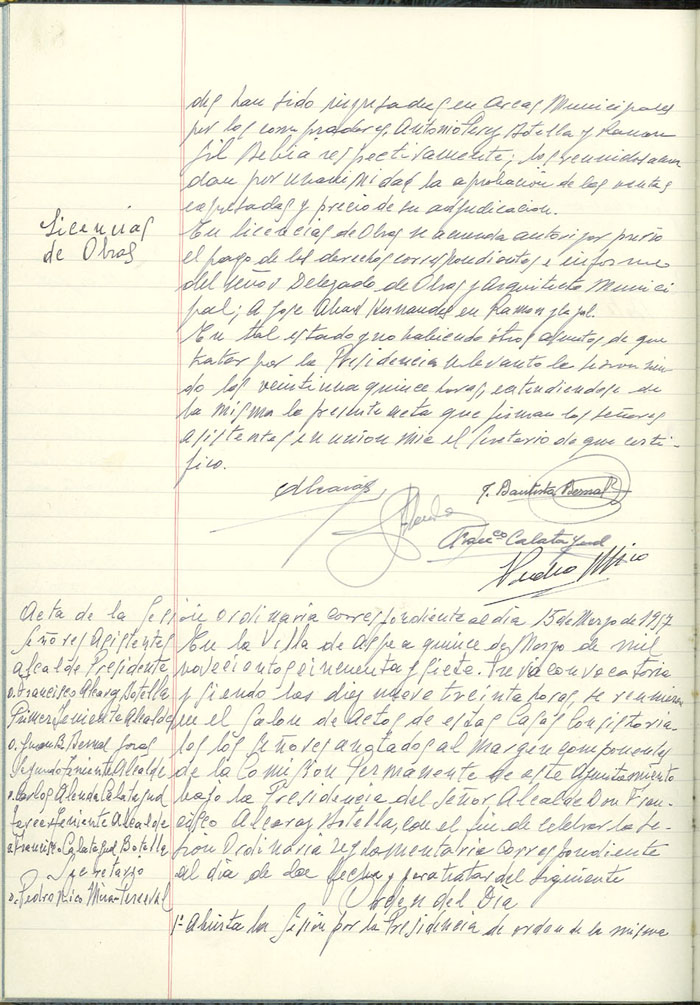 des han sido ingresadas en arcas Municipales
por los compradores Antonio Perez Botella y Ramon
Gil Bebia respectivamente; los reunidos acuer
dan por unanimidad la aprobación de las ventas
expresadas y precio de su adjudicacion.
Licencias
de Obras
En licencias de Obras se acuerda autorizar previo
el pago de los derechos correspondientes e informe
del Señor Delegado de Obras y Arquitecto Munici
pal; a Jose Abad Hernandez en Ramon y Cajal.
En tal estado y no habiendo otros asuntos de que
tratar por la Presidencia se levanta la sesion sien
do las veintiuna quince horas, extendiendose de
la misma la presente acta que firman los señores
asistentes en union mia el Secretario de que certi-
fico.
Alcaraz
J. Bautista Bernal
Franco Calatayud
Pedro Mico
Acta de la Sesión Ordinaria correspondiente al dia 15 de Marzo de 1957
Señores Asistentes
Alcalde Presidente
D. Francisco Alcaraz Botella
Primer Teniente Alcalde
D. Juan B. Bernal
Segundo Teniente Alcalde
D. Carlos Alenda Calatayud
Tercer Teniente Alcalde
D. Francisco Calatayud Botella
Secretario
D. Pedro Mico
En la Villa de Aspe a quince de Marzo de mil
novecientos cincuenta y siete. Previa convocatoria
y siendo las diez nueve treinta horas, se reunieron
en el Salon de Actos de estas Casas Consistoria-
les los señores anotados al margen componentes
de la Comision Permanente de este Ayuntamiento
bajo la Presidencia del Señor Alcalde Don Fran-
cisco Alcaraz Botella, con el fin de celebrar la Se-
sion Ordinaria reglamentaria correspondiente
al dia de la fecha y para tratar del siguiente
Orden del Dia
1º Abierta la Sesión por la Presidencia de orden de la misma